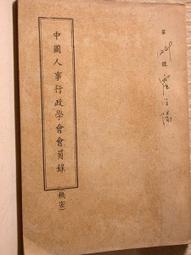 中國人事行政學會會員錄
(機密)
第
號